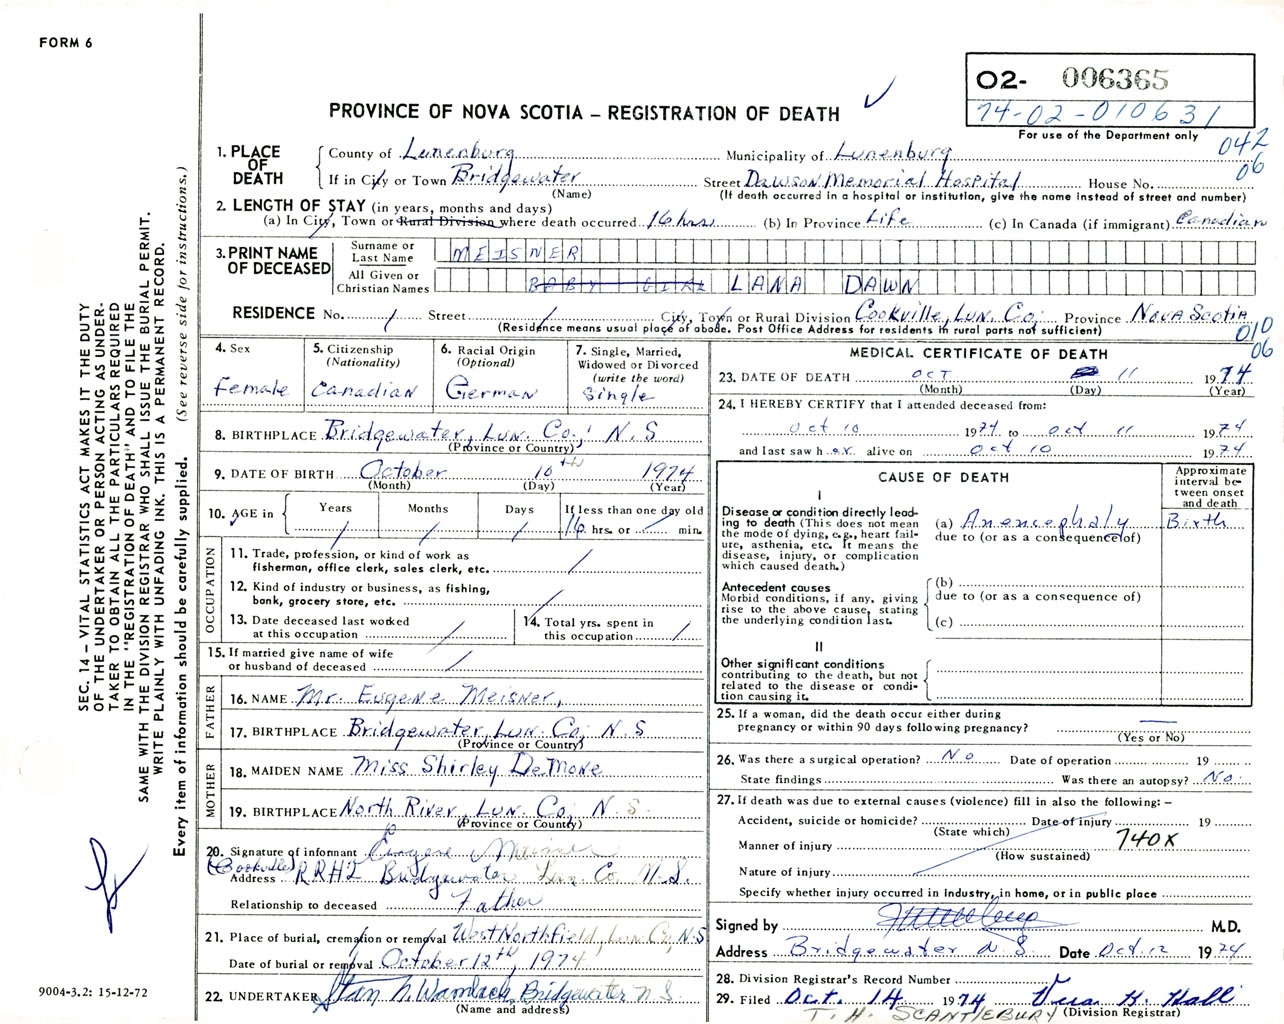 FORM 6
O2- 006365
74-02-010631
For use of the Department only
PROVINCE OF NOVA SCOTIA – REGISTRATION OF DEATH
042
06
1. PLACE OF DEATH
County of Lunenburg Municipality of Lunenburg
If in City or Town Bridgewater Street Dawson Memorial Hospital House No.
(Name) (If death occurred in a hospital or institution, give the name instead of street and number)
2. LENGTH OF STAY (in years, months and days)
(a) In City, Town or Rural Division where death occurred 16 hrs (b) In Province Life (c) In Canada (if immigrant) Canadian
3. PRINT NAME OF DECEASED
Surname or Last Name MEISNER
All Given or Christian Names BABY GIRL LANA DAWN
RESIDENCE No. / Street / City, Town or Rural Division Cookville, Lun. Co; Province Nova Scotia
(Residence means usual place of abode. Post Office Address for residents in rural parts not sufficient)
010
06
4. Sex Female
5. Citizenship (Nationality) Canadian
6. Racial Origin (Optional) German
7. Single, Married, Widowed or Divorced (write the word) Single
8. BIRTHPLACE Bridgewater, Lun. Co; N.S
(Province or Country)
9. DATE OF BIRTH October 10th 1974
(Month) (Day) (Year)
10. AGE in Years / Months / Days / If less than one day old 16 hrs. or / min.
OCCUPATION
11. Trade, profession, or kind of work as fisherman, office clerk, sales clerk, etc. /
12. Kind of industry or business, as fishing, bank, grocery store, etc. /
13. Date deceased last worked at this occupation /
14. Total yrs. spent in this occupation /
15. If married give name of wife or husband of deceased /
FATHER
16. NAME Mr. Eugene Meisner,
17. BIRTHPLACE Bridgewater, Lun. Co; N.S
(Province or Country)
MOTHER
18. MAIDEN NAME Miss Shirley DeMone
19. BIRTHPLACE North River, Lun. Co; N.S
(Province or Country)
20. Signature of informant Eugene Meisner
(Cookville)
Address RR#2 Bridgewater Lun Co N.S.
Relationship to deceased Father
21. Place of burial, cremation or removal West Northfield, Lun. Co, N.S
Date of burial or removal October 12th, 1974
22. UNDERTAKER Bridgewater N.S.
(Name and address)
MEDICAL CERTIFICATE OF DEATH
23. DATE OF DEATH Oct 11 1974
(Month) (Day) (Year)
24. I HEREBY CERTIFY that I attended deceased from:
Oct 10 1974 to Oct 11 1974
and last saw her alive on Oct 10 1974
CAUSE OF DEATH
Approximate interval between onset and death
I
Disease or condition directly leading to death (This does not mean the mode of dying, e.g., heart failure, asthenia, etc. It means the disease, injury, or complication which caused death.)
(a) Anencephaly Birth
due to (or as a consequence of)
Antecedent causes
Morbid conditions, if any, giving rise to the above cause, stating the underlying condition last.
(b)
due to (or as a consequence of)
(c)
II
Other significant conditions contributing to the death, but not related to the disease or condition causing it.
25. If a woman, did the death occur either during pregnancy or within 90 days following pregnancy? —
(Yes or No)
26. Was there a surgical operation? No Date of operation 19
State findings Was there an autopsy? No
27. If death was due to external causes (violence) fill in also the following: –
Accident, suicide or homicide? Date of injury 19
(State which)
Manner of injury 740X
(How sustained)
Nature of injury
Specify whether injury occurred in industry, in home, or in public place
Signed by M.D.
Address Bridgewater N.S. Date Oct. 12 1974
28. Division Registrar's Record Number
29. Filed Oct. 14 1974 Vera H. Hall
T. H. SCANTLEBURY (Division Registrar)
SEC. 14 – VITAL STATISTICS ACT MAKES IT THE DUTY
OF THE UNDERTAKER OR PERSON ACTING AS UNDER-
TAKER TO OBTAIN ALL THE PARTICULARS REQUIRED
IN THE "REGISTRATION OF DEATH" AND TO FILE THE
SAME WITH THE DIVISION REGISTRAR WHO SHALL ISSUE THE BURIAL PERMIT.
WRITE PLAINLY WITH UNFADING INK. THIS IS A PERMANENT RECORD.
Every item of information should be carefully supplied. (See reverse side for instructions.)
9004-3.2: 15-12-72